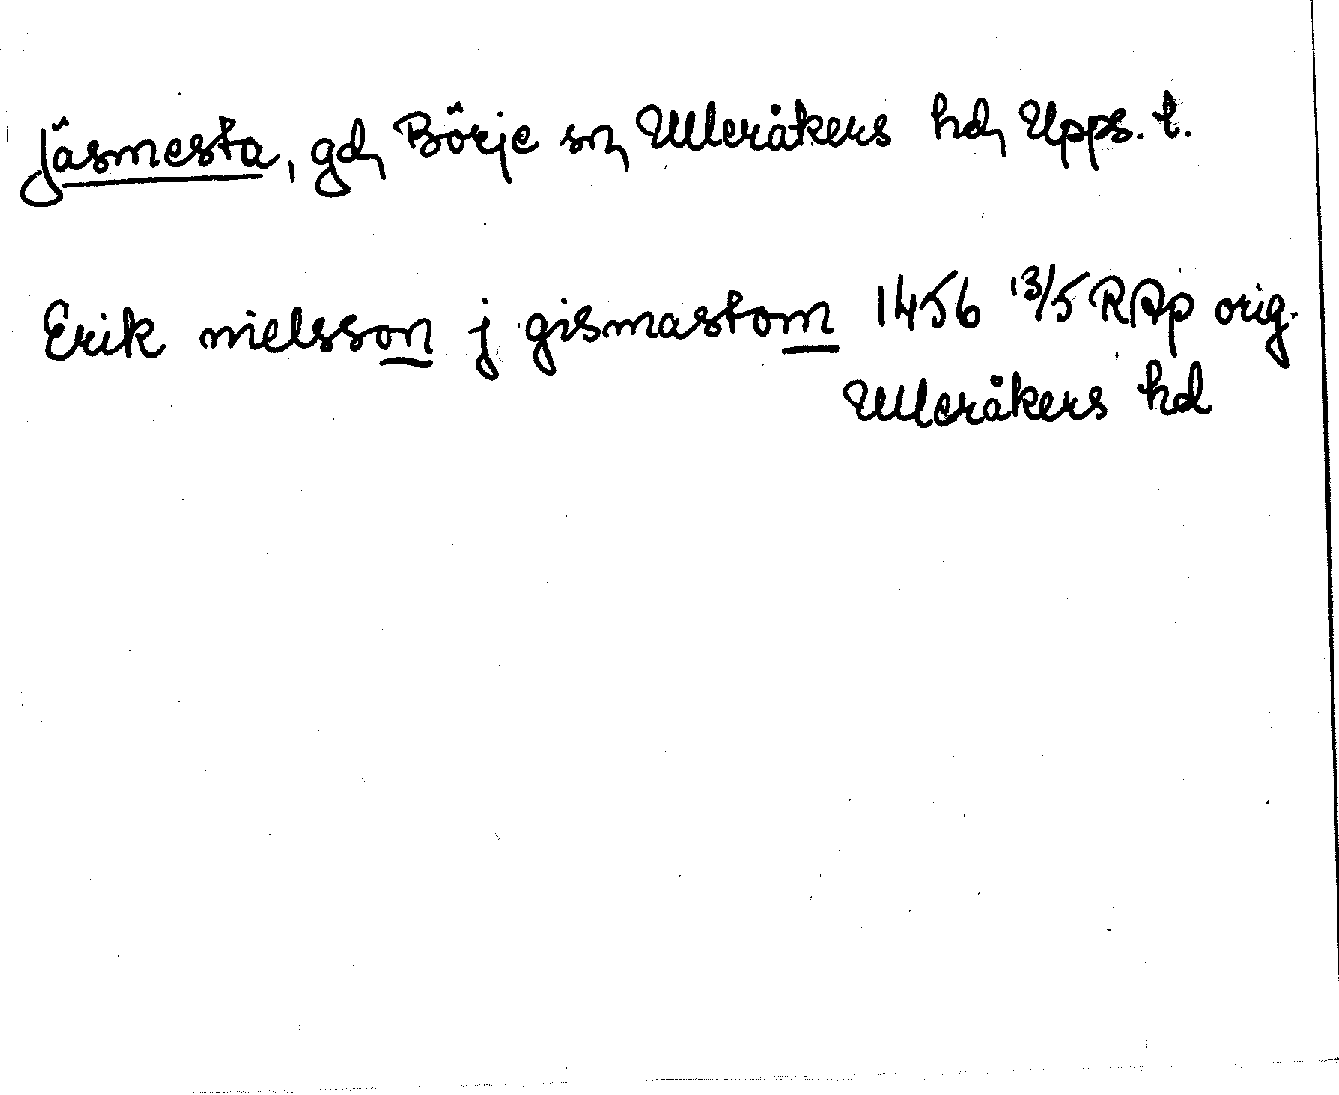 Jäsmesta, gd, Börje sn, Ulleråkers hd, Upps. l.
Erik nielsson j gismastom 1456 13/5 RApp orig.
Ulleråkers hd